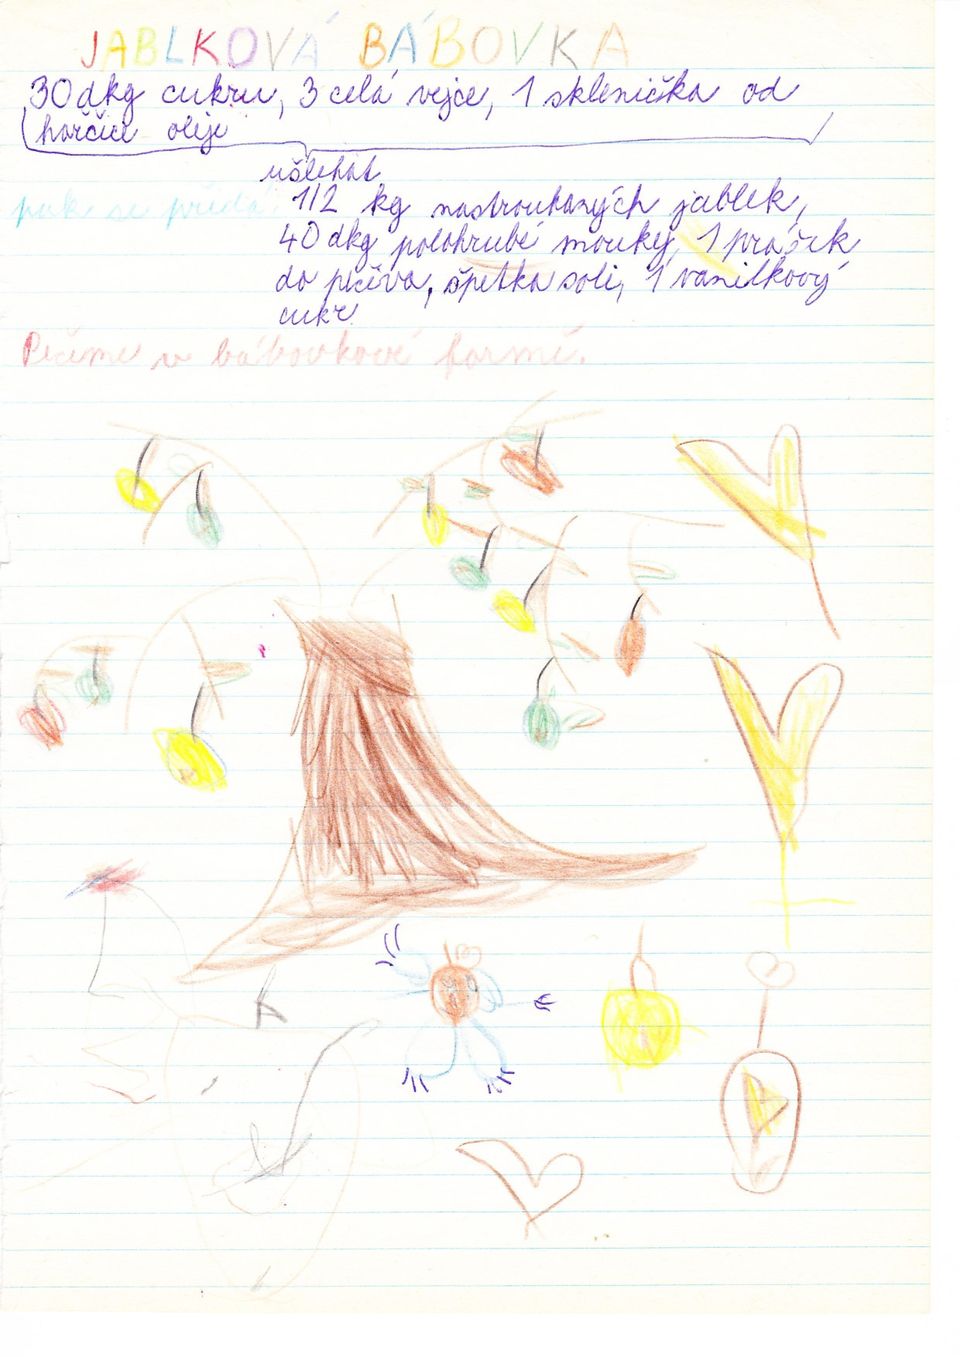 JABLKOVÁ BÁBOVKA
30 dkg cukru, 3 celá vejce, 1 sklenička od
hořčice oleje
ušlehat
pak se přidá: 1/2 kg nastrouhaných jablek,
40 dkg polohrubé mouky, 1 prášek
do pečiva, špetka soli, 1 vanilkový
cukr
Pečeme v bábovkové formě.